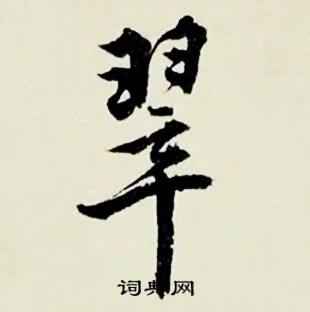 翠
词典网